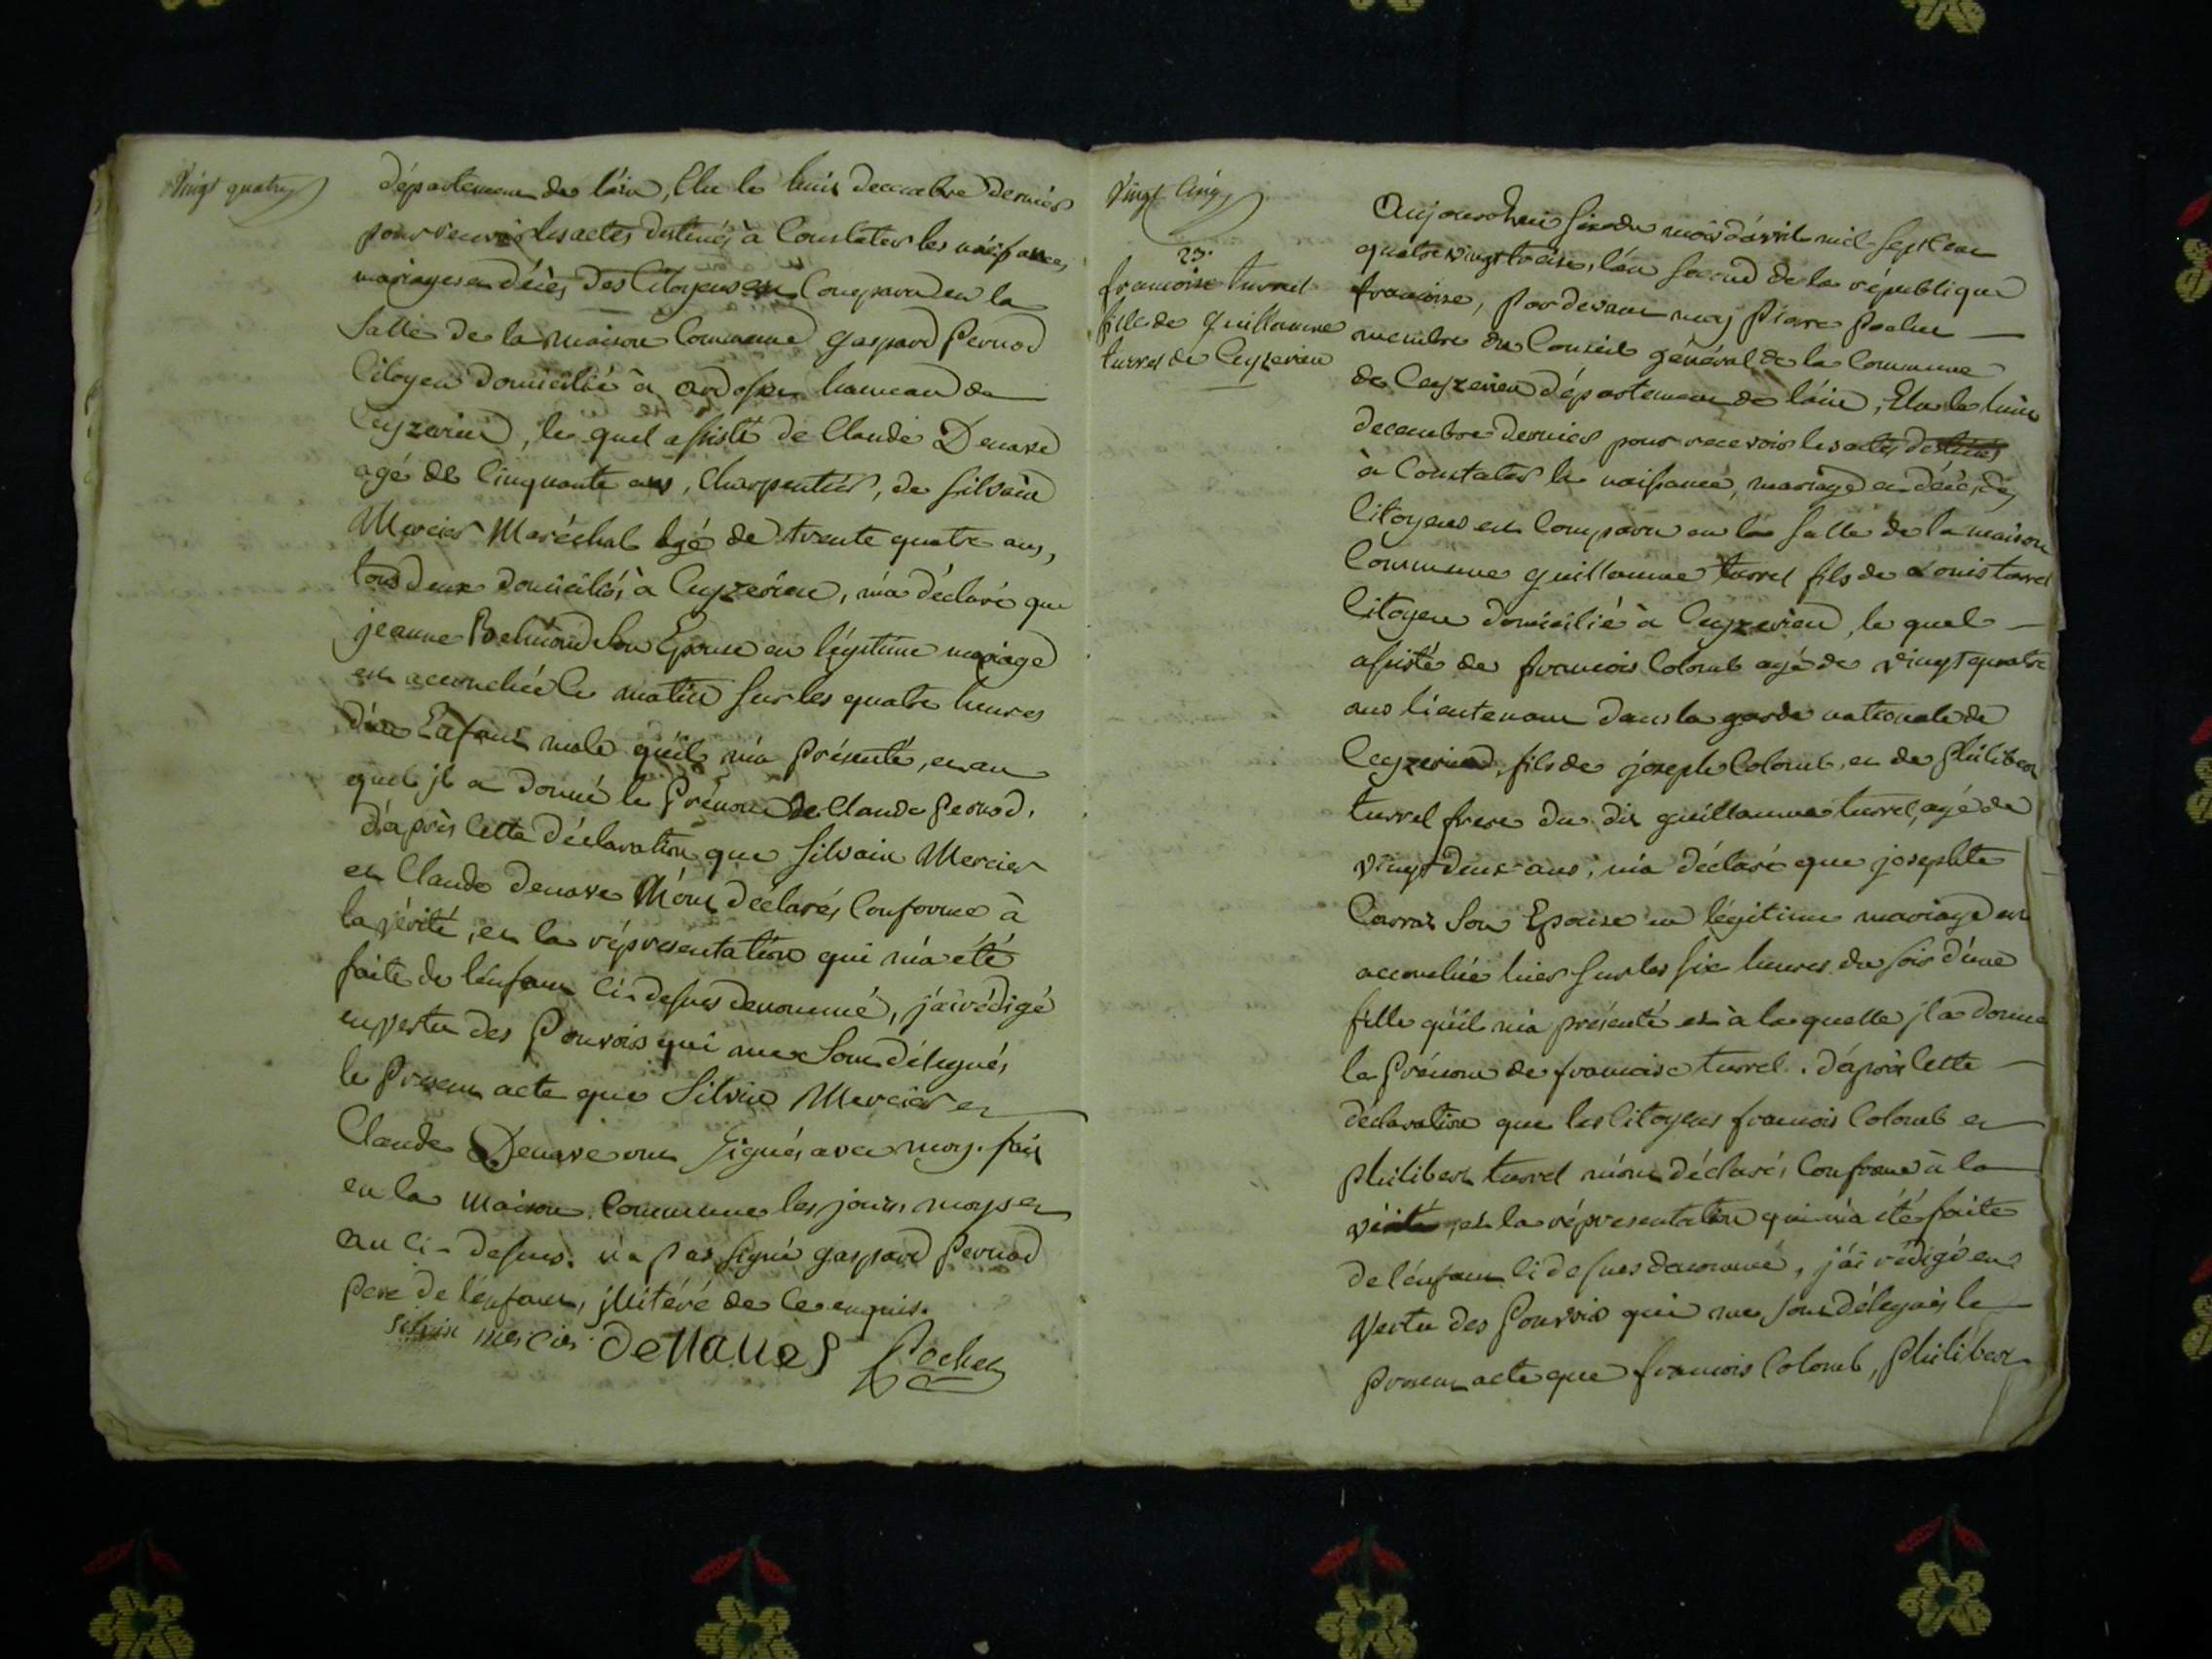 Vingt quatre
département de l'ain, Elu le huit decembre dernier
pour recevoir les actes destinés à Constater les naissances,
mariages et décès des Citoyens est Comparu en la
Salle de la maison Commune gaspard Pernod
Citoyen domicilié à hameau de
Ceyzerieu, le quel assisté de Claude Denave
agé de Cinquante ans, Charpentier, de Silvain
Mercier Maréchal agé de trente quatre ans,
tous deux domiciliés à Ceyzerieu, m'a déclaré que
jeanne Belmond Son Epouse en légitime mariage
est accouchée le matin Sur les quatre heures
d'un Enfant male qu'il m'a Présenté, et au
quel jl a donné le Prénom de Claude Pernod.
d'après Cette déclaration que Silvain Mercier
et Claude denave M'ont déclarés Conforme à
la vérité, et la réprésentation qui m'a été
faite de l'enfant Ci-dessus denommé, j'ai rédigé
en vertu des Pouvoirs qui me Sont délégués
le Present acte que Silvin Mercier et
Claude Denave ont Signés avec moy. fait
en la Maison Commune les jours, moys et
an Ci-dessus. n'a Pas Signé gaspard Pernod
Pere de l'enfant, jllitéré de Ce enquis.
silvin mercier Denaue Pochet
Vingt Cinq
23.
francoise turrel
fille de guillaume
turrel de Ceyzerieu
Aujourd'hui Six du mois d'avril mil Sept Cent
quatre vingt treise, l'an Second de la république
francoise, Par devant moy Pierre Pochet
membre du Conseil général de la Commune
de Ceyzerieu département de l'ain, Elu le huit
decembre dernier pour recevoir les actes destinés
à Constater la naissance, mariage et décès des
Citoyens est Comparu en la Salle de la maison
Commune guillaume turrel fils de Louis turrel
Citoyen domicilié à Ceyzerieu, le quel
assisté de francois Colomb agé de vingt quatre
ans lieutenant dans la garde nationale de
Ceyzerieu, fils de joseph Colomb, et de Philibert
turrel frere du dit guillaume turrel, agé de
vingt deux ans, m'a déclaré que josephte
Carraz Son Epouse en légitime mariage est
accouchée hier Sur les Six heures du soir d'une
fille qu'il m'a présenté et à la quelle jl a donné
le Prénom de francoise turrel. d'après Cette
déclaration que les Citoyens francois Colomb et
philibert turrel m'ont déclarés Conforme à la
vérité, et la réprésentation qui m'a été faite
de l'enfant Ci dessus denommé, j'ai rédigé en
Vertu des Pouvoirs qui me Sont délégués le
Present acte que francois Colomb, Philibert